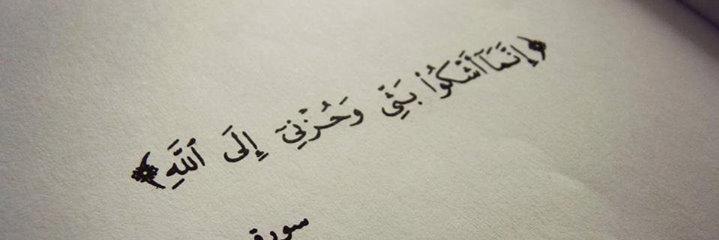 ﴿إِنَّمَآ أَشْكُوا۟ بَثِّى وَحُزْنِىٓ إِلَى ٱللَّهِ﴾
سورة